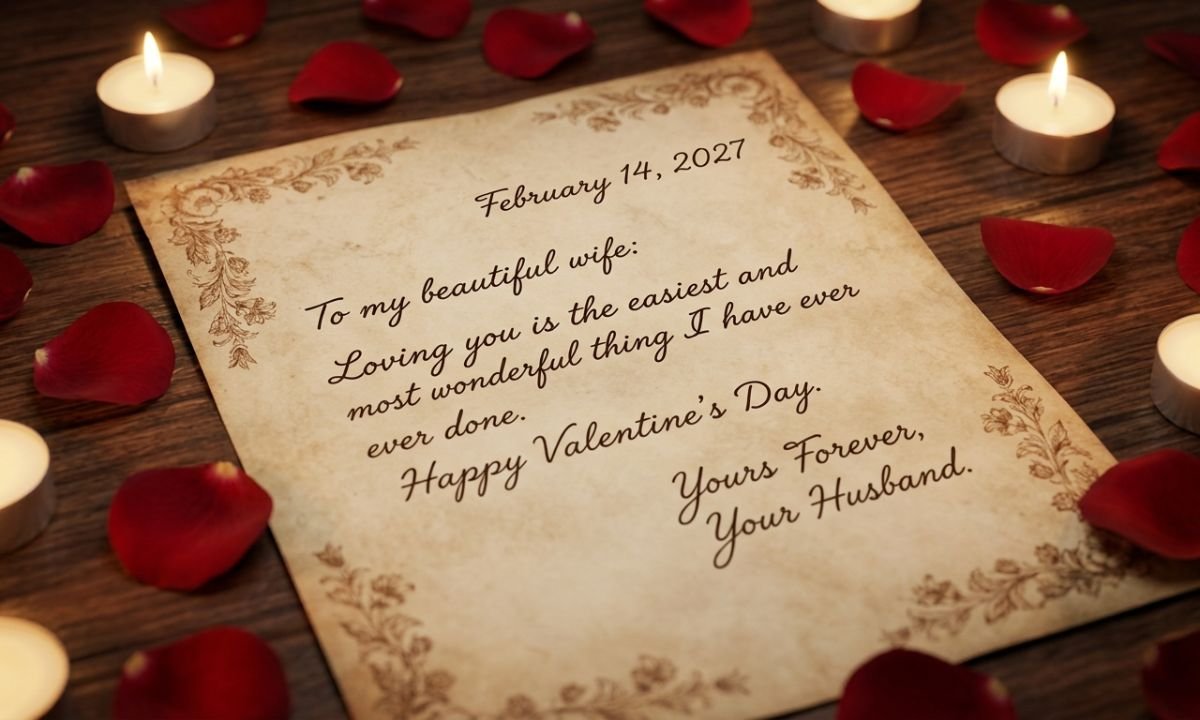 February 14, 2027
To my beautiful wife:
Loving you is the easiest and
most wonderful thing I have ever
ever done.
Happy Valentine's Day.
Yours Forever,
Your Husband.